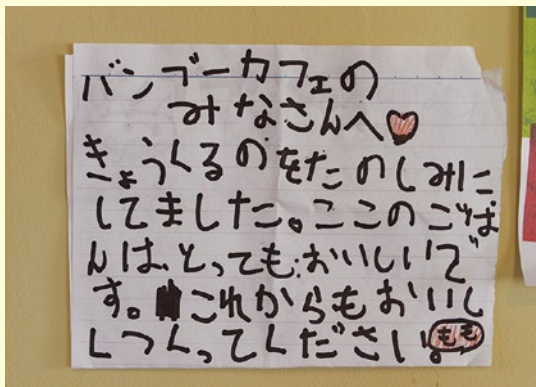 バンブーカフェの
みなさんへ
きょうくるのをたのしみに
してました。ここのごは
んは、とってもおいしいで
す。これからもおいし
しつくってください。
もも